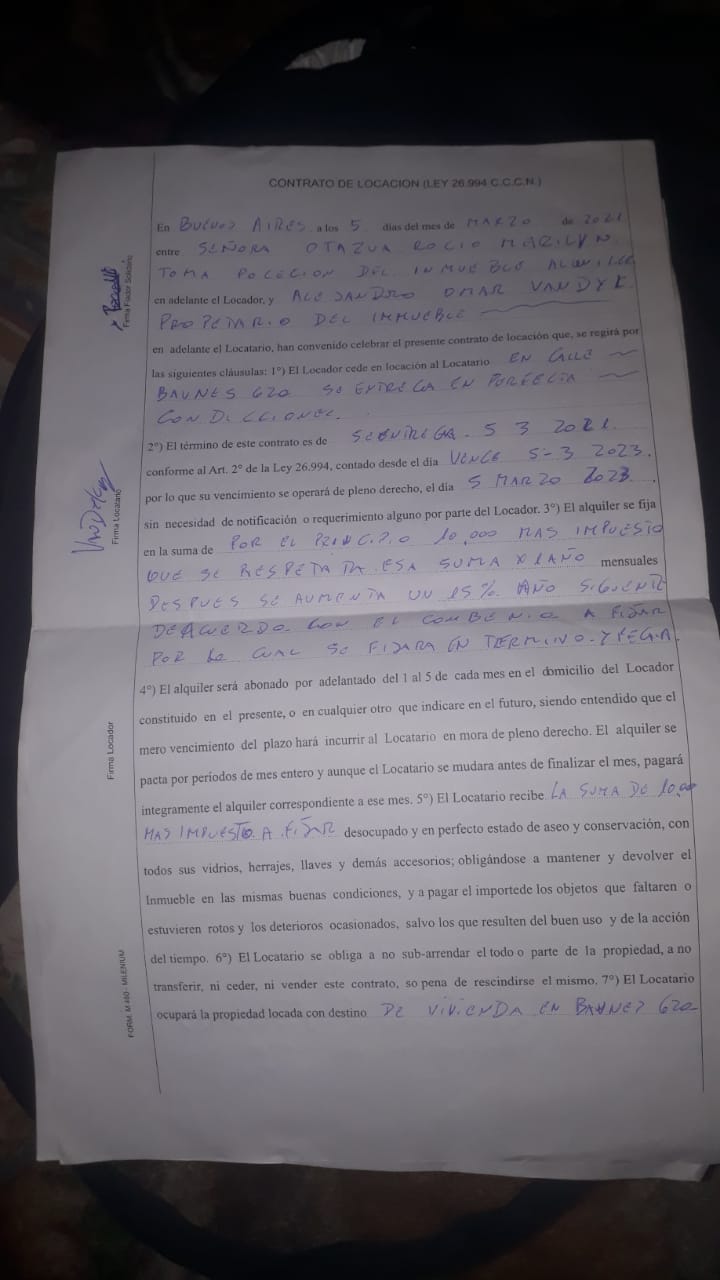 CONTRATO DE LOCACION (LEY 26.994 C.C.C.N.)
En BUENOS AIRES a los 5 días del mes de MARZO de 2021
entre SEÑORA OTAZUA ROCIO MARILYN
TOMA POCECION DEL INMUEBLE
en adelante el Locador, y ALEJANDRO OMAR VANDYK
PROPETARIO DEL IMMUEBLE
en adelante el Locatario, han convenido celebrar el presente contrato de locación que, se regirá por
las siguientes cláusulas: 1°) El Locador cede en locación al Locatario EN CALLE
620 SE ENTREGA EN PERFECTA
CONDICCIONEL.
2°) El término de este contrato es de SE ENTREGA. 5 3 2021.
conforme al Art. 2° de la Ley 26.994, contado desde el día VENCE 5-3 2023.
por lo que su vencimiento se operará de pleno derecho, el día 5 MARZO 2023
sin necesidad de notificación o requerimiento alguno por parte del Locador. 3°) El alquiler se fija
en la suma de POR EL PRINCIPIO 10,000 MAS IMPUESTO
QUE SE RESPETA TA ESA SUMA X 1 AÑO mensuales
DESPUES SE AUMENTA UN 15% AÑO SIGUENTE
DEACUERDO CON EL COMBENIO A FIJAR
POR LO CUAL SE FIJARA EN TERMINO - Y
4°) El alquiler será abonado por adelantado del 1 al 5 de cada mes en el domicilio del Locador
constituido en el presente, o en cualquier otro que indicare en el futuro, siendo entendido que el
mero vencimiento del plazo hará incurrir al Locatario en mora de pleno derecho. El alquiler se
pacta por períodos de mes entero y aunque el Locatario se mudara antes de finalizar el mes, pagará
integramente el alquiler correspondiente a ese mes. 5°) El Locatario recibe LA SUMA DE 10,00
MAS IMPUESTO A FIJAR desocupado y en perfecto estado de aseo y conservación, con
todos sus vidrios, herrajes, llaves y demás accesorios; obligándose a mantener y devolver el
Inmueble en las mismas buenas condiciones, y a pagar el importede los objetos que faltaren o
estuvieren rotos y los deterioros ocasionados, salvo los que resulten del buen uso y de la acción
del tiempo. 6°) El Locatario se obliga a no sub-arrendar el todo o parte de la propiedad, a no
transferir, ni ceder, ni vender este contrato, so pena de rescindirse el mismo. 7°) El Locatario
ocupará la propiedad locada con destino DE VIVIENDA EN 620
Firma Fiador Solidario
Firma Locatario
Firma Locador
FORM. M 460 - MILENIUM